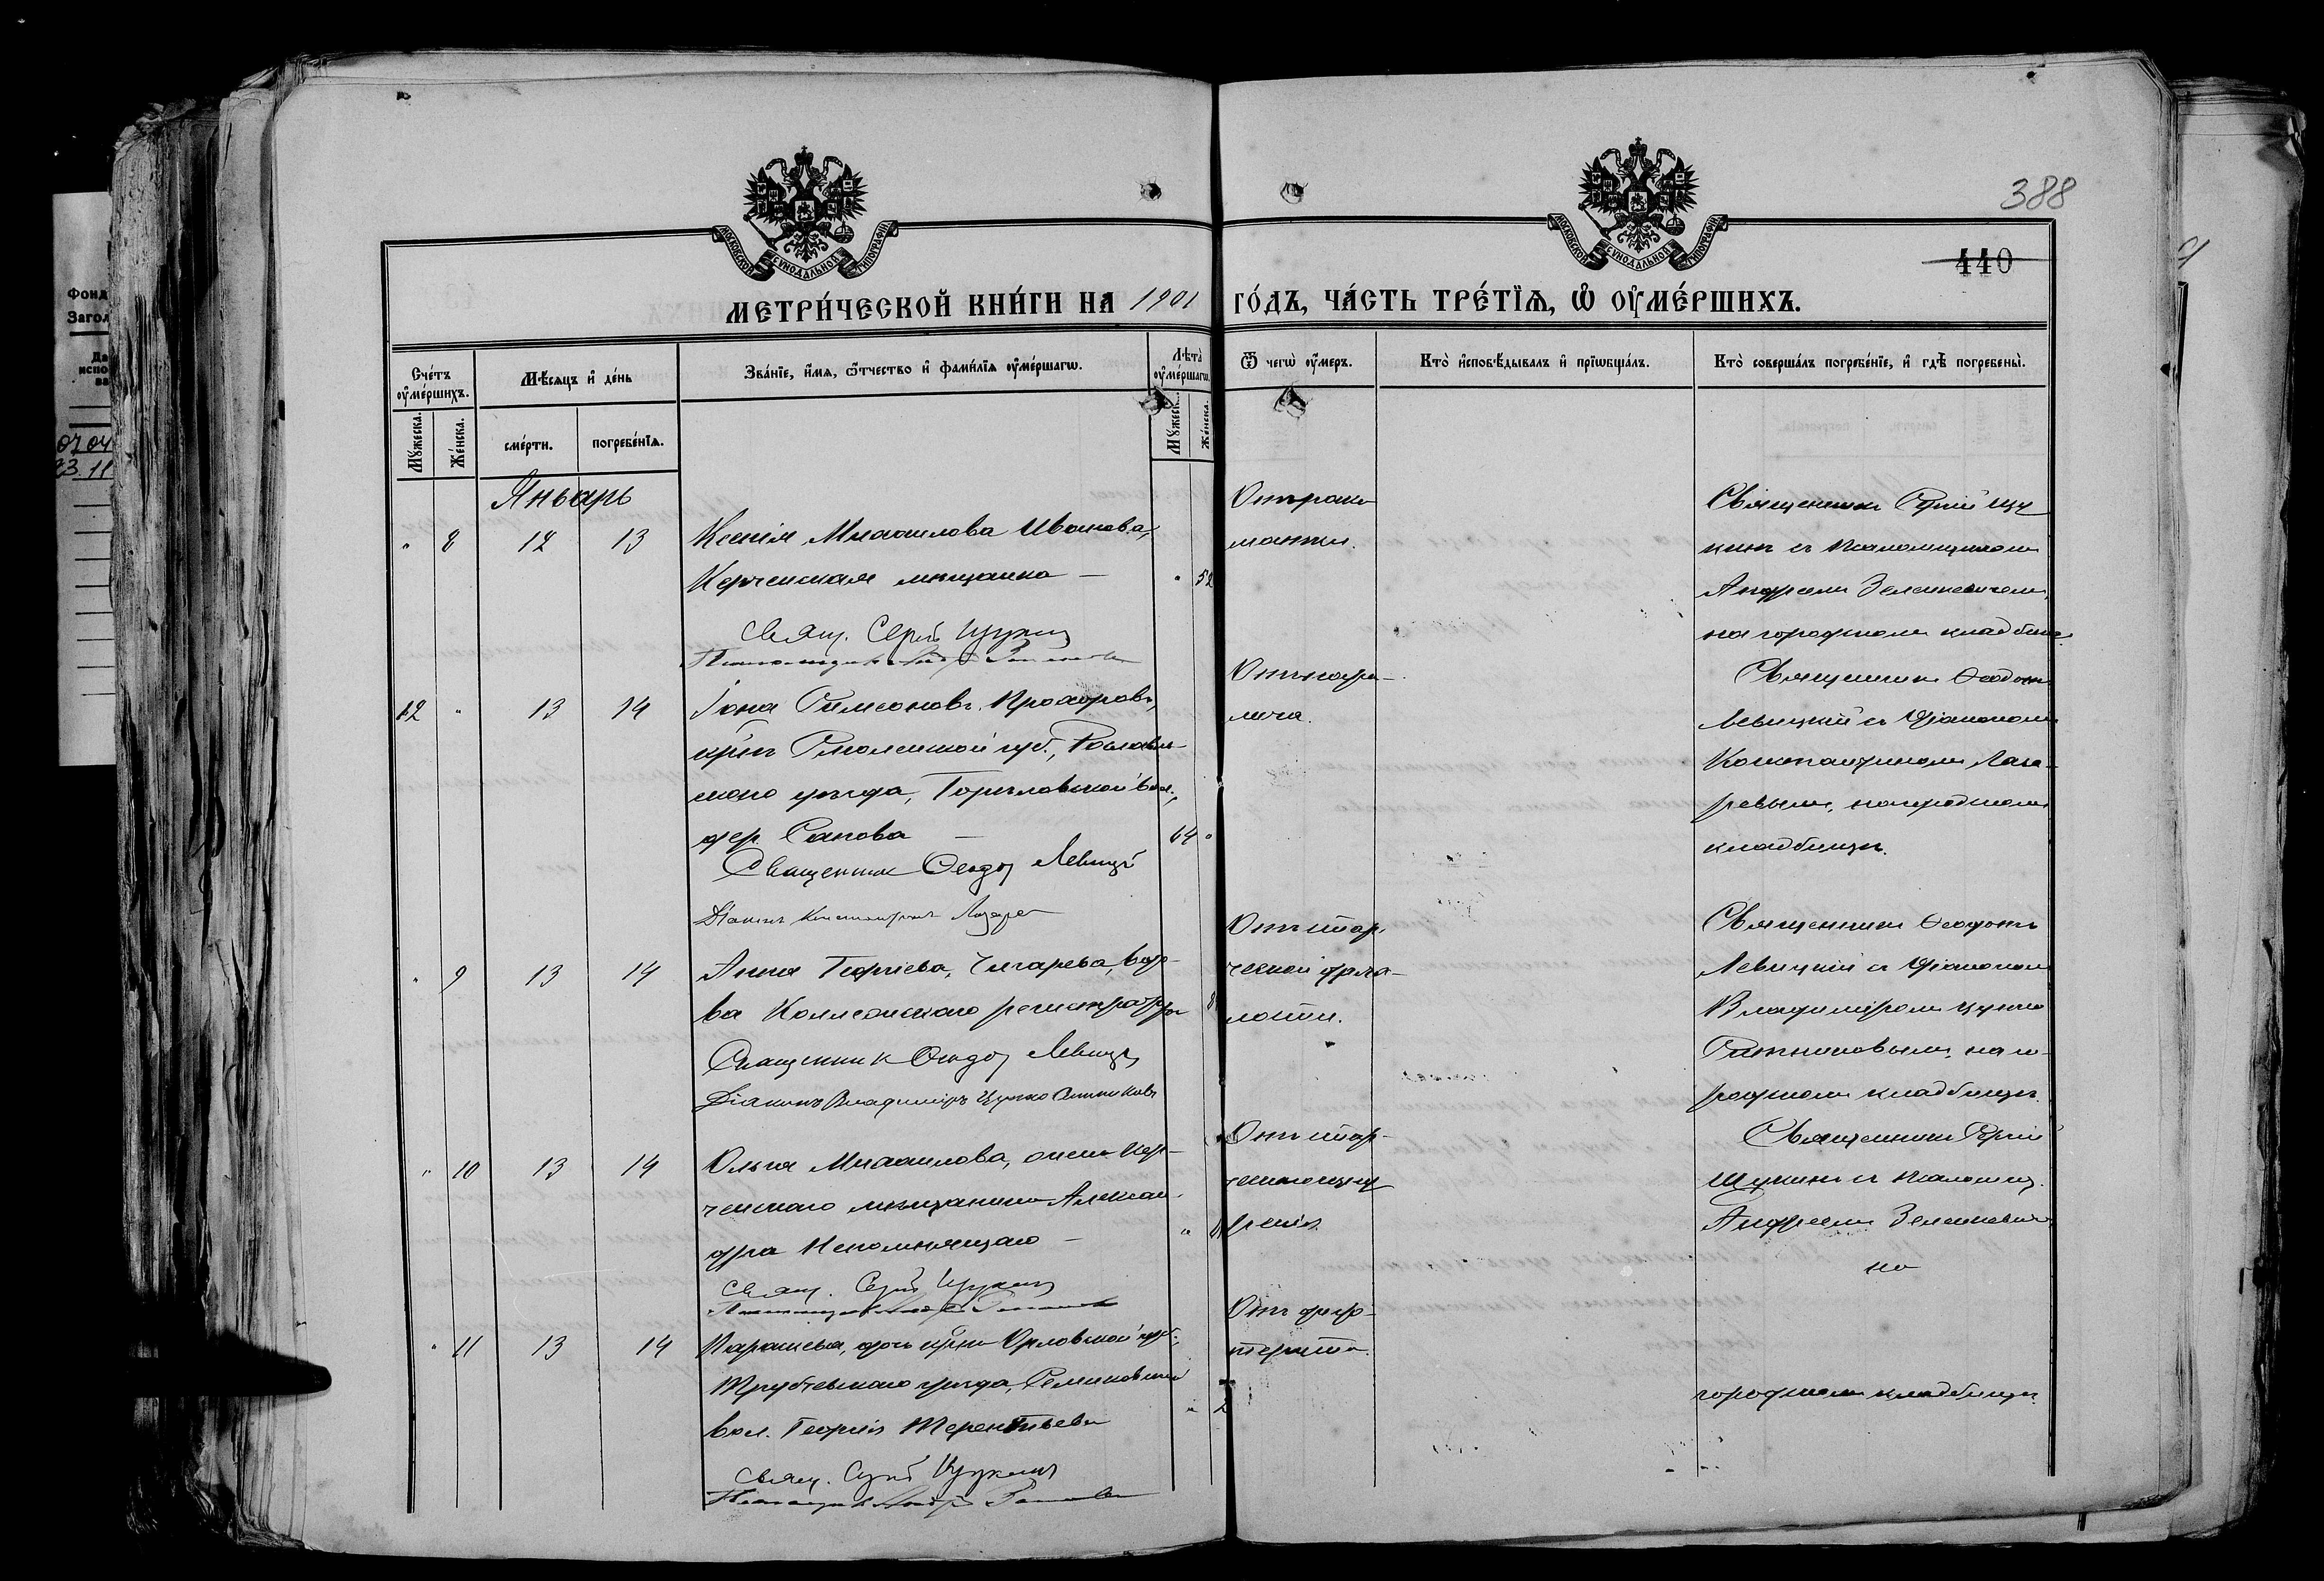 388
440
МОСКОВСКОЙ СУНОДАЛЬНОЙ ТИПОГРАФІИ
МОСКОВСКОЙ СУНОДАЛЬНОЙ ТИПОГРАФІИ
МЕТРИ́ЧЕСКОЙ КНИ́ГИ НА 1901 ГО́ДЪ, ЧА́СТЬ ТРЕ́ТЇѦ, Ѡ ОУ҆МЕ́РШИХЪ.
Сче́тъ оу҆ме́ршихъ.
Мꙋ́жеска.
Же́нска.
Мѣ́сяцъ и҆ де́нь
сме́рти.
погребе́нїѧ.
Зва́нїе, и҆́мѧ, ѻ҆́тчество и҆ фами́лїѧ оу҆ме́ршагѡ.
Лѣ̀та оу҆ме́ршагѡ.
Мꙋ́жеск.
Же́нска.
Ѿ чегѡ̀ оу҆́меръ.
Кто̀ и҆сповѣ́дывалъ и҆ прїѡбща́лъ.
Кто̀ соверша́лъ погребе́нїе, и҆ гдѣ̀ погребены̀.
Январь
" 8 12 13 Ксенія Михаилова Иванова,
Керченская мещанка — " 52
Свящ. Сергій Щукин
Отъ рака
матки.
Священник Сергій Щу
кинъ съ псаломщиком
Андреем Зеленкевичем,
на городском кладбище
12 " 13 14 Іона Симеоновъ Прохоровъ,
кр͞нъ Смоленской губ., Рославль-
скаго уезда, вол.,
дер. Санова — 64 "
Священник Феодот Левицкій
Діаконъ Константинъ Лазарев
Отъ пара-
лича.
Священник Феодот
Левицкий съ Діаконом
Константином Лаза-
ревым, на городском
кладбище.
" 9 13 14 Анна Георгіева, Чигарева, вдо-
ва Коллежскаго регистратора
Священник Феодот Левицкій
Діаконъ Владиміръ Цунко Ситниковъ
Отъ стар-
ческой дрях-
лости.
Священник Феодот
Левицкий съ Діаконом
Владиміром Цунко
Ситниковым, на го-
родском кладбище.
" 10 13 14 Ольга Михаилова, жена Кер-
ченскаго мещанина Алексан-
дра Непомнящаго — "
Свящ. Сергій Щукинъ
Отъ стар-
Священник Сергій
Щукинъ съ псаломщ.
Андреем Зеленкевич
на
" 11 13 14 Параскева, дочь кр͞на Орловской губ.,
Трубчевскаго уезда, Семячковской
вол. Георгія Терентьева " 2
Свящ. Сергій Щукинъ
Отъ диф-
терита.
городском кладбище.